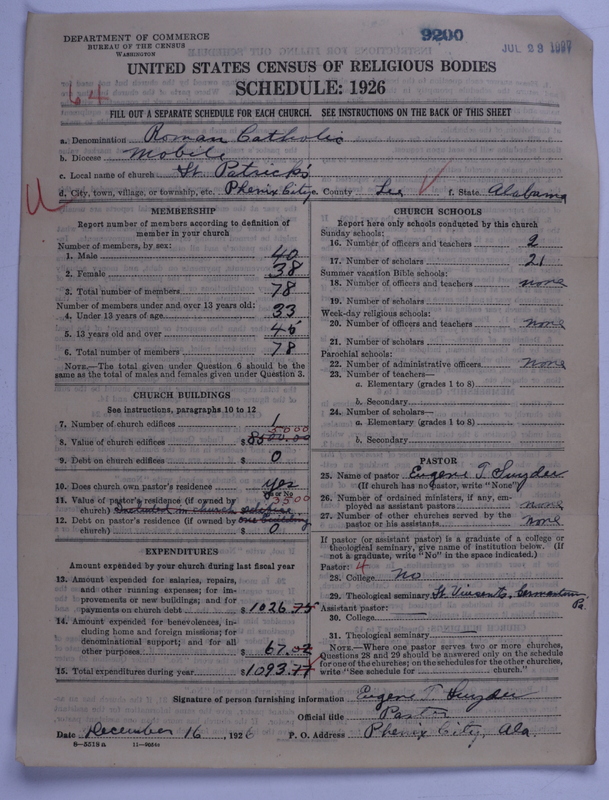 9200
JUL 29 1927
DEPARTMENT OF COMMERCE
BUREAU OF THE CENSUS
WASHINGTON
UNITED STATES CENSUS OF RELIGIOUS BODIES
SCHEDULE: 1926
64
FILL OUT A SEPARATE SCHEDULE FOR EACH CHURCH. SEE INSTRUCTIONS ON THE BACK OF THIS SHEET
a. Denomination Roman Catholic
b. Diocese Mobile
c. Local name of church St. Patrick's
d. City, town, village, or township, etc. Phenix City e. County Lee f. State Alabama
U
MEMBERSHIP
Report number of members according to definition of
member in your church
Number of members, by sex:
1. Male 40
2. Female 38
3. Total number of members 78
Number of members under and over 13 years old:
4. Under 13 years of age 33
5. 13 years old and over 45
6. Total number of members 78
NOTE.—The total given under Question 6 should be
same as the total of males and females given under Question 3.
CHURCH BUILDINGS
See instructions, paragraphs 10 to 12
7. Number of church edifices 1
5000
8. Value of church edifices $8500.00
9. Debt on church edifices $ 0
10. Does church own pastor's residence yes
Yes or No
11. Value of pastor's residence (if owned by 3500
church) Included in church edifice
12. Debt on pastor's residence (if owned by one building
church) $ 0
EXPENDITURES
Amount expended by your church during last fiscal year
13. Amount expended for salaries, repairs,
and other running expenses; for im-
provements or new buildings; and for
payments on church debt $1026.75
14. Amount expended for benevolences, in-
cluding home and foreign missions; for
denominational support; and for all
other purposes $ 67.02
15. Total expenditures during year $1093.77
CHURCH SCHOOLS
Report here only schools conducted by this church
Sunday schools:
16. Number of officers and teachers 2
17. Number of scholars 21
Summer vacation Bible schools:
18. Number of officers and teachers none
19. Number of scholars
Week-day religious schools:
20. Number of officers and teachers none
21. Number of scholars
Parochial schools:
22. Number of administrative officers none
23. Number of teachers—
a. Elementary (grades 1 to 8)
b. Secondary
24. Number of scholars—
a. Elementary (grades 1 to 8)
b. Secondary
PASTOR
25. Name of pastor Eugene T. Snyder
(If church has no pastor, write "None")
26. Number of ordained ministers, if any, em-
ployed as assistant pastors none
27. Number of other churches served by the
pastor or his assistants none
If pastor (or assistant pastor) is a graduate of a college or
theological seminary, give name of institution below. (If
not a graduate, write "No" in the space indicated.)
Pastor: 4
28. College No
29. Theological seminary St. Vincent's, Germantown
Pa.
Assistant pastor:
30. College
31. Theological seminary
NOTE.—Where one pastor serves two or more churches,
Questions 28 and 29 should be answered only on the schedule
for one of the churches; on the schedules for the other churches,
write "See schedule for church."
Signature of person furnishing information Eugene T. Snyder
Official title Pastor
Date December 16, 1926 P. O. Address Phenix City, Ala.
8—5518a